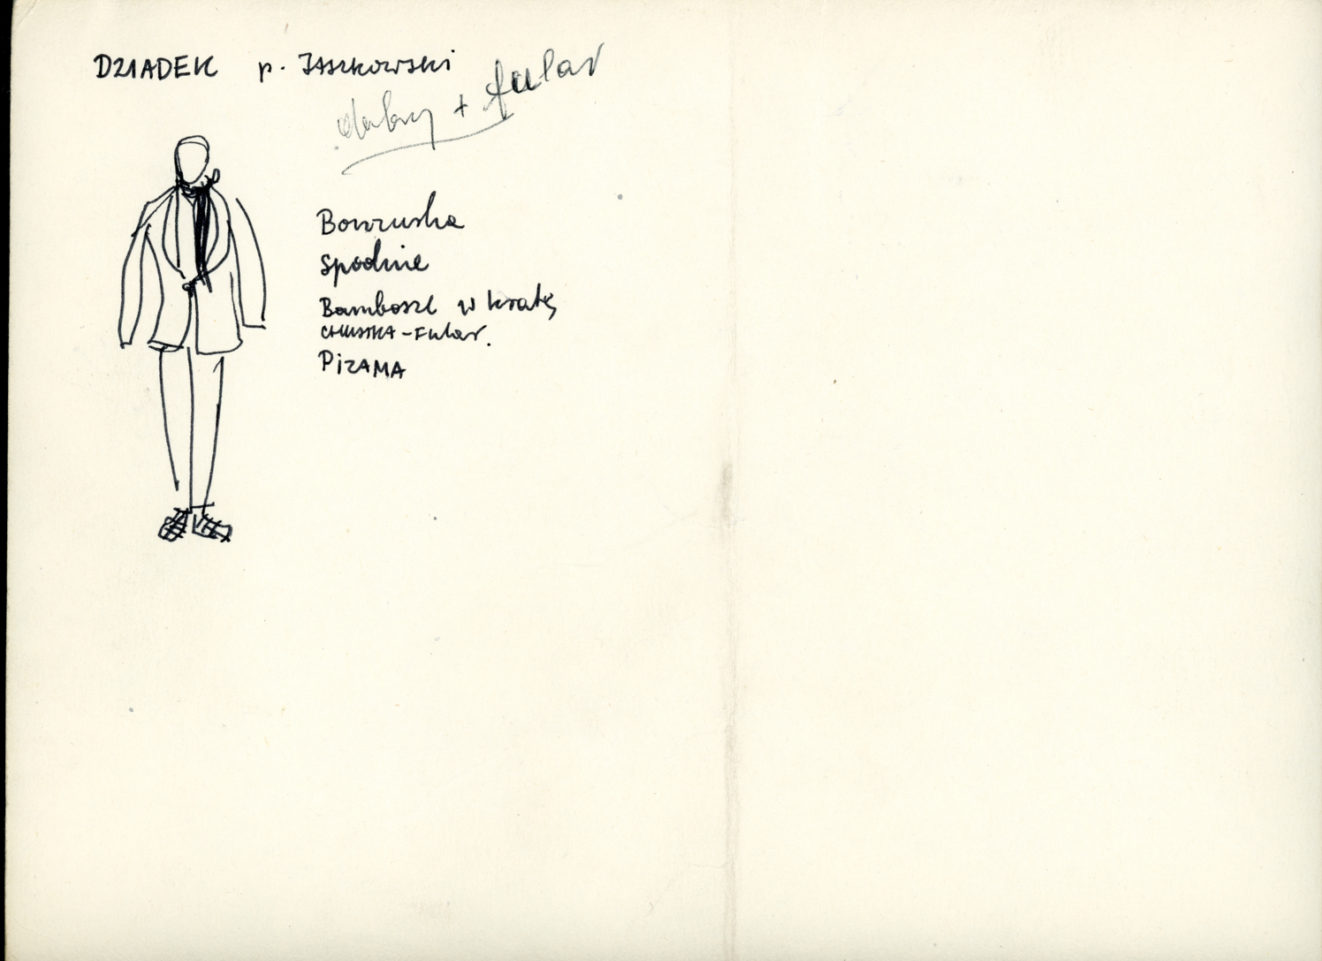 DZIADEK p. JASZKOWSKI
dobry + fular
Bonżurka
spodnie
Bambosze w kratę
CHUSTKA - Fular.
PIŻAMA